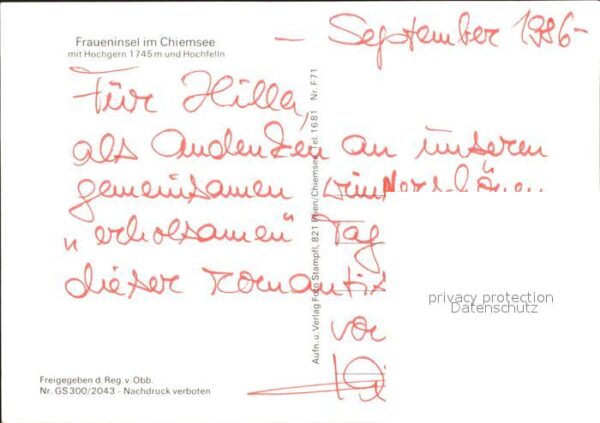 Fraueninsel im Chiemsee
mit Hochgern 1745 m und Hochfelln
- September 1986 -
Für Hilla,
als Andenken an unseren
gemeinsamen
"erholsamen" Tag
dieser
vor
Aufn. u. Verlag Foto Stampfl, 821 Prien/Chiemsee, Tel. 1681 Nr. F71
privacy protection
Datenschutz
Freigegeben d. Reg. v. Obb.
Nr. GS300/2043 - Nachdruck verboten